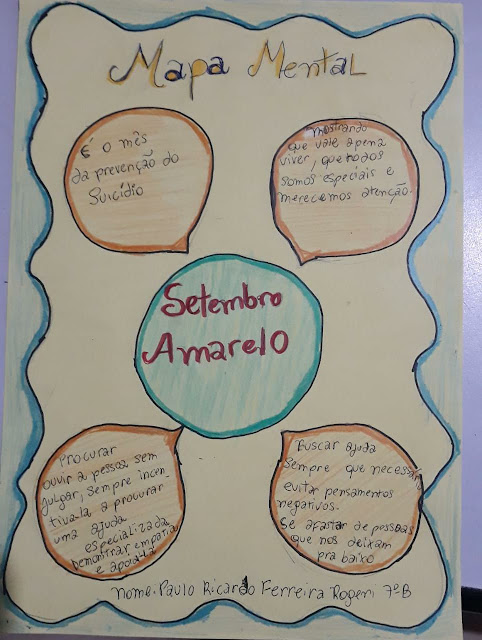 Mapa Mental
É o mês
da prevenção do
Suicídio
mostrando
que vale apena
viver, que todos
somos especiais e
merecemos atenção.
Setembro
Amarelo
Procurar
ouvir a pessoa sem
julgar, sempre incen-
tiva-la, a procurar
uma ajuda
especializada
Demonstrar empatia
e apoia-la
Buscar ajuda
sempre que necessário
evitar pensamentos
negativos.
Se afastar de pessoas
que nos deixam
pra baixo
Nome: Paulo Ricardo Ferreira Rogeri 7ºB